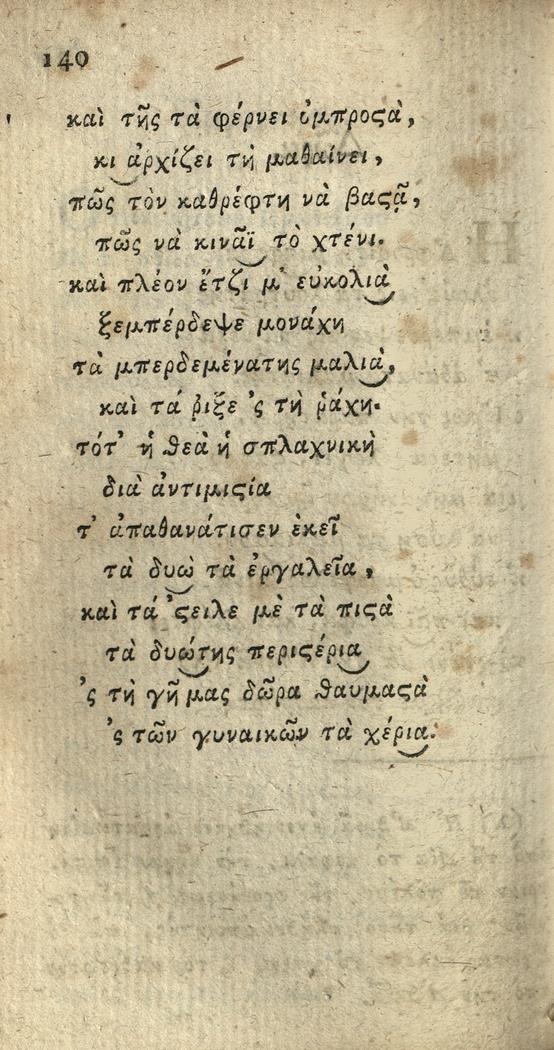 140
καὶ τῆς τὰ φέρνει ὀμπροϛὰ,
κι ἀρχίζει τὴ μαθαίνει,
πῶς τὸν καθρέφτη νὰ βαϛᾷ,
πῶς νὰ κινᾶϊ τὸ χτένι.
καὶ πλέον ἔτζι μ' εὐκολιὰ
ξεμπέρδεψε μονάχη
τὰ μπερδεμένατης μαλιὰ,
καὶ τά ῥιξε 'ς τὴ ῥάχη.
τότ' ἡ θεὰ ἡ σπλαχνικὴ
διὰ ἀντιμιϛία
τ' ἀπαθανάτισεν ἐκεῖ
τὰ δυὼ τὰ ἐργαλεῖα,
καὶ τά 'ϛειλε μὲ τὰ πιϛὰ
τὰ δυώτης περιϛέρια
'ς τὴ γῆ μας δῶρα θαυμαϛὰ
'ς τῶν γυναικῶν τὰ χέρια.